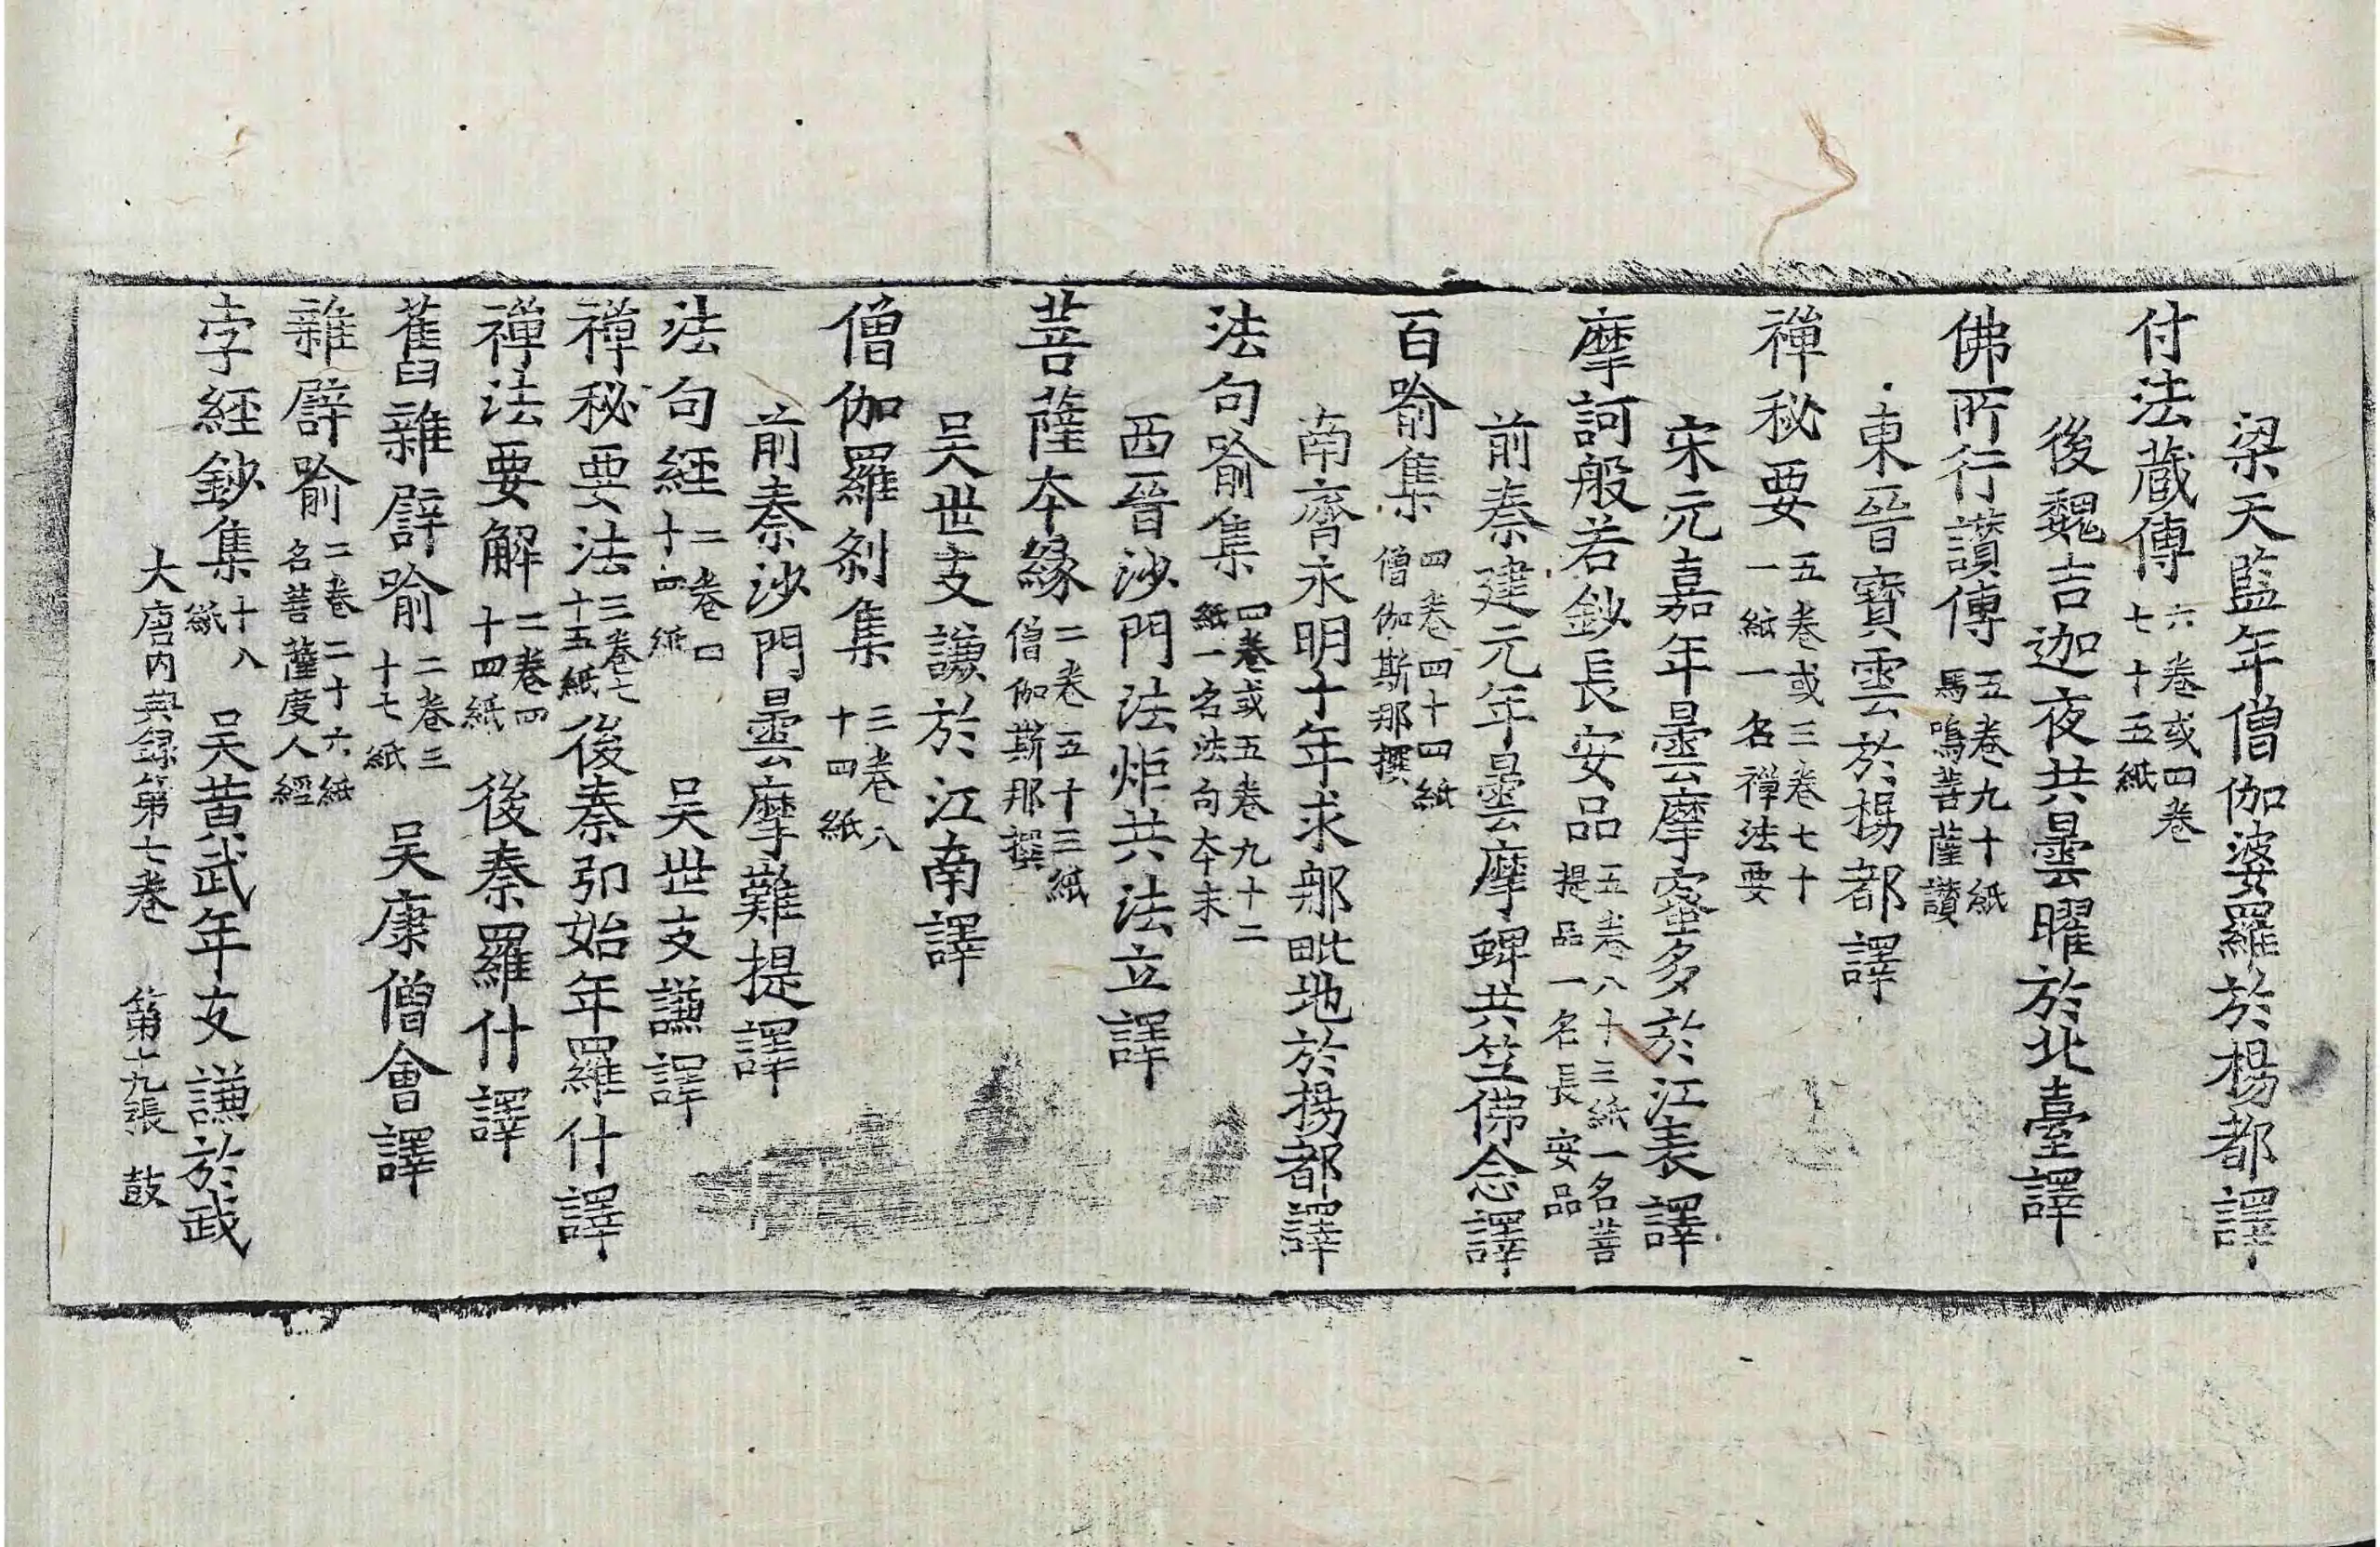 梁天監年僧伽婆羅於楊都譯
付法蔵傳六卷或四卷七十五紙
後魏吉迦夜共曇曜於北臺譯
佛所行讃傳五卷九十紙馬鳴菩薩讃
東晉寶雲於楊都譯
禪秘要五卷或三卷七十一紙一名禪法要
宋元嘉年曇摩蜜多於江表譯
摩訶般若鈔長安品五卷八十三紙一名菩提品一名長安品
前秦建元年曇摩蜱共竺佛念譯
百喻集四卷四十四紙僧伽斯那撰
南齊永明十年求那毗地於揚都譯
法句喻集四卷或五卷九十二紙一名法句本末
西晉沙門法炬共法立譯
菩薩本緣二卷五十三紙僧伽斯那撰
吴世支謙於江南譯
僧伽羅剎集三卷八十四紙
前秦沙門曇摩難提譯
法句經二卷口十四紙 吴世支謙譯
禪秘要法三卷七十五紙後秦弘始年羅什譯
禪法要解二卷四十四紙 後秦羅什譯
舊雜譬喻二卷三十七紙 吴康僧會譯
雜譬喻二卷二十六紙名菩薩度人經
孛經鈔集十八紙 吴黄武年支謙於武
大唐内典録第七卷 第十九張 鼓